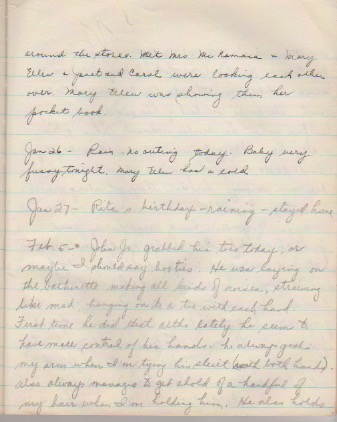 around the stores. Met Mrs McNamara - Mary
Ellen & and Carol were looking each other
over. Mary Ellen was showing them her
pocket book.
Jan 26 - Rain. No outing today. Baby very
fussy tonight. Mary Ellen has a cold
Jan 27 - Pete's birthday - raining - stayed home
Feb. 5 - John Jr. grabbed his toes today, or
maybe I should say booties. He was laying on
the bathinette making all kinds of noises, straining
like mad hanging on to a toe with each hand.
First time he did that altho lately he seems to
have more control of his hands. He always grabs
my arm when I'm tying his (with both hands).
also always manages to get ahold of a handful of
my hair when I'm holding him. He also holds